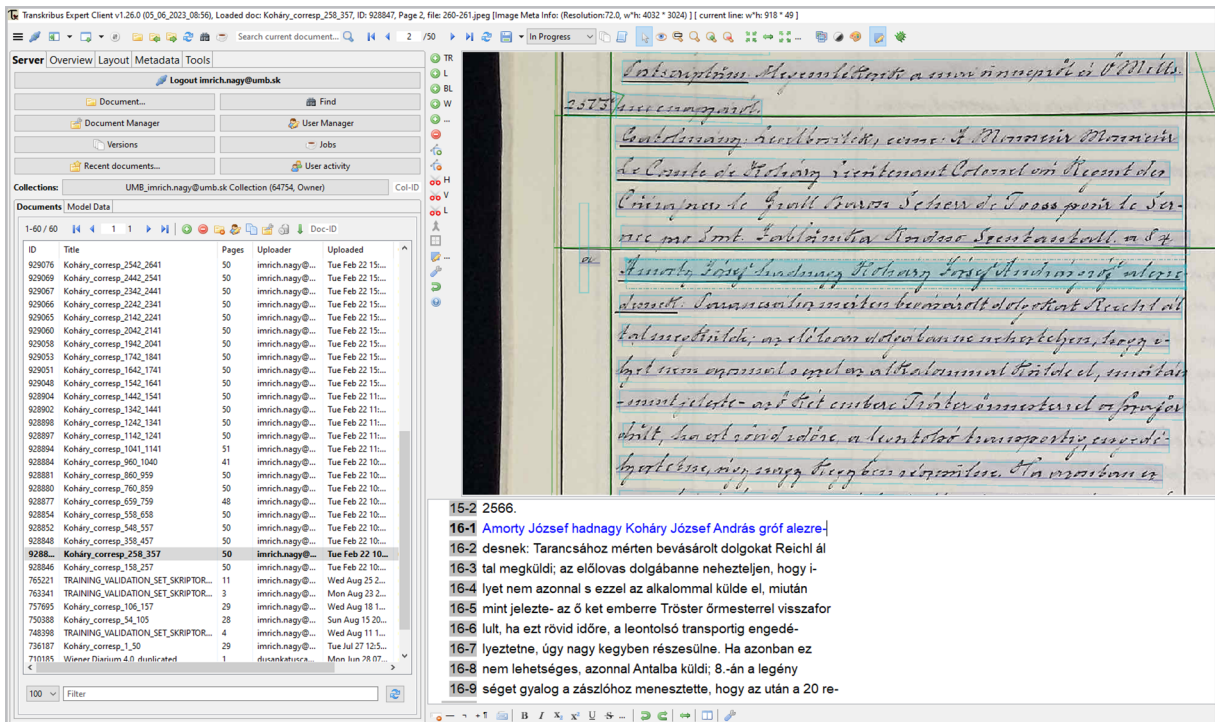 Transkribus Expert Client v1.26.0 (05_06_2023_08:56), Loaded doc: Koháry_corresp_258_357, ID: 928847, Page 2, file: 260-261.jpeg [Image Meta Info: (Resolution:72.0, w*h: 4032 * 3024) ] [ current line: w*h: 918 * 49 ]
Search current document... 2 /50 In Progress
Server Overview Layout Metadata Tools
Logout imrich.nagy@umb.sk
Document... Find
Document Manager User Manager
Versions Jobs
Recent documents... User activity
Collections: UMB_imrich.nagy@umb.sk Collection (64754, Owner) Col-ID
Documents Model Data
1-60 / 60 1 1 Doc-ID
ID Title Pages Uploader Uploaded
929076 Koháry_corresp_2542_2641 50 imrich.nagy@... Tue Feb 22 15:...
929069 Koháry_corresp_2442_2541 50 imrich.nagy@... Tue Feb 22 15:...
929067 Koháry_corresp_2342_2441 50 imrich.nagy@... Tue Feb 22 15:...
929066 Koháry_corresp_2242_2341 50 imrich.nagy@... Tue Feb 22 15:...
929065 Koháry_corresp_2142_2241 50 imrich.nagy@... Tue Feb 22 15:...
929060 Koháry_corresp_2042_2141 50 imrich.nagy@... Tue Feb 22 15:...
929058 Koháry_corresp_1942_2041 50 imrich.nagy@... Tue Feb 22 15:...
929053 Koháry_corresp_1742_1841 50 imrich.nagy@... Tue Feb 22 15:...
929051 Koháry_corresp_1642_1741 50 imrich.nagy@... Tue Feb 22 15:...
929048 Koháry_corresp_1542_1641 50 imrich.nagy@... Tue Feb 22 15:...
928904 Koháry_corresp_1442_1541 50 imrich.nagy@... Tue Feb 22 11:...
928902 Koháry_corresp_1342_1441 50 imrich.nagy@... Tue Feb 22 11:...
928898 Koháry_corresp_1242_1341 50 imrich.nagy@... Tue Feb 22 11:...
928897 Koháry_corresp_1142_1241 50 imrich.nagy@... Tue Feb 22 11:...
928894 Koháry_corresp_1041_1141 51 imrich.nagy@... Tue Feb 22 11:...
928884 Koháry_corresp_960_1040 41 imrich.nagy@... Tue Feb 22 10:...
928881 Koháry_corresp_860_959 50 imrich.nagy@... Tue Feb 22 10:...
928880 Koháry_corresp_760_859 50 imrich.nagy@... Tue Feb 22 10:...
928877 Koháry_corresp_659_759 48 imrich.nagy@... Tue Feb 22 10:...
928854 Koháry_corresp_558_658 50 imrich.nagy@... Tue Feb 22 10:...
928852 Koháry_corresp_548_557 50 imrich.nagy@... Tue Feb 22 10:...
928848 Koháry_corresp_358_457 50 imrich.nagy@... Tue Feb 22 10:...
9288... Koháry_corresp_258_357 50 imrich.nagy@... Tue Feb 22 10...
928846 Koháry_corresp_158_257 50 imrich.nagy@... Tue Feb 22 10:...
765221 TRAINING_VALIDATION_SET_SKRIPTOR... 11 imrich.nagy@... Wed Aug 25 2...
763341 TRAINING_VALIDATION_SET_SKRIPTOR... 3 imrich.nagy@... Mon Aug 23 2...
757695 Koháry_corresp_106_157 29 imrich.nagy@... Wed Aug 18 1...
750388 Koháry_corresp_54_105 28 imrich.nagy@... Sun Aug 15 20...
748398 TRAINING_VALIDATION_SET_SKRIPTOR... 4 imrich.nagy@... Wed Aug 11 1...
736187 Koháry_corresp_1_50 29 imrich.nagy@... Tue Jul 27 12:5...
710185 Wiener Diarium 4.0_duplicated 1 dusankatusca... Mon Jun 28 07...
100 Filter
TR
L
BL
W
...
H
V
L
...
Postscriptum: Megemlékezik a mai ünnepről és Ő Mélts.
2573
Csatolmány: Levélboríték, címe: A Monsieur Monsieur
Le Comte de Koháry Lieutenant Colonel
Baron Scherr de Tooss pour le Ser-
Amorty József hadnagy Koháry József András gróf alezre-
desnek: Tarancsához mérten bevásárolt dolgokat Reichl ál
tal megküldi; az előlovas dolgában ne nehezteljen, hogy i-
lyet nem azonnal s ezzel az alkalommal külde el, miután
-mint jelezte- az ő két embere Tröster őrmesterrel visszafor
dúlt, ha ezt rövid időre, a leontolsó transportig engedé-
lyeztetne, úgy nagy kegyben részesülne. Ha azonban ez
15-2 2566.
16-1 Amorty József hadnagy Koháry József András gróf alezre-
16-2 desnek: Tarancsához mérten bevásárolt dolgokat Reichl ál
16-3 tal megküldi; az előlovas dolgábanne nehezteljen, hogy i-
16-4 lyet nem azonnal s ezzel az alkalommal külde el, miután
16-5 mint jelezte- az ő ket emberre Tröster őrmesterrel visszafor
16-6 lult, ha ezt rövid időre, a leontolsó transportig engedé-
16-7 lyeztetne, úgy nagy kegyben részesülne. Ha azonban ez
16-8 nem lehetséges, azonnal Antalba küldi; 8.-án a legény
16-9 séget gyalog a zászlóhoz menesztette, hogy az után a 20 re-
B I X₁ x² U S ...